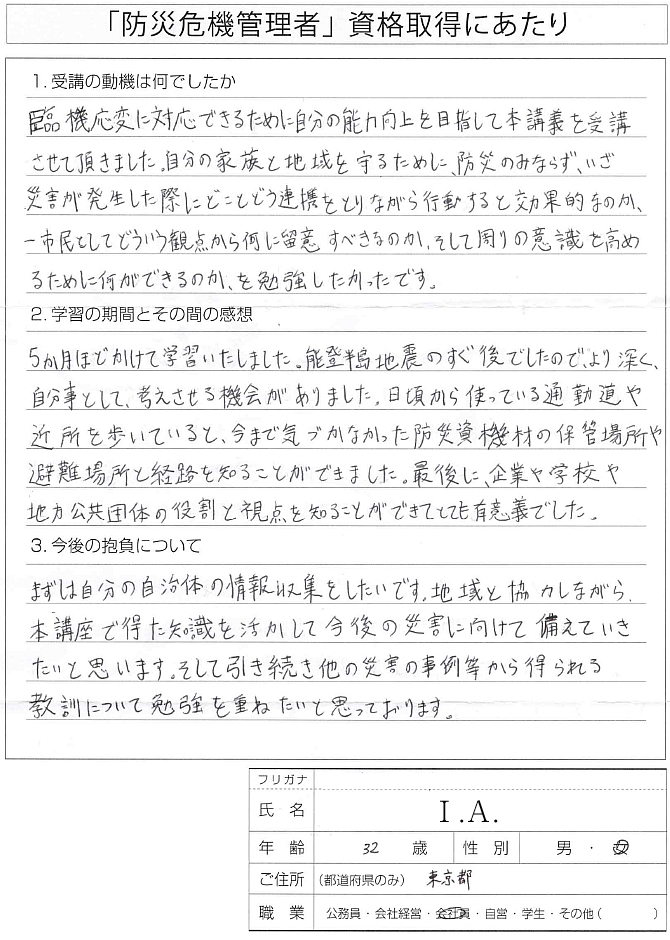 「防災危機管理者」資格取得にあたり
1. 受講の動機は何でしたか
臨機応変に対応できるために自分の能力向上を目指して本講義を受講
させて頂きました。自分の家族と地域を守るために、防災のみならず、いざ
災害が発生した際にどことどう連携をとりながら行動すると効果的なのか、
一市民としてどういう観点から何に留意すべきなのか、そして周りの意識を高め
るために何ができるのか、を勉強したかったです。
2. 学習の期間とその間の感想
5か月ほどかけて学習いたしました。能登半島地震のすぐ後でしたので、より深く、
自分事として、考えさせる機会がありました。日頃から使っている通勤道や
近所を歩いていると、今まで気づかなかった防災資機材の保管場所や
避難場所と経路を知ることができました。最後に、企業や学校や
地方公共団体の役割と視点を知ることができてとても有意義でした。
3. 今後の抱負について
まずは自分の自治体の情報収集をしたいです。地域と協力しながら、
本講座で得た知識を活かして今後の災害に向けて備えていき
たいと思います。そして引き続き他の災害の事例等から得られる
教訓について勉強を重ねたいと思っております。
フリガナ
氏名 I.A.
年齢 32 歳 性別 男・女
ご住所 (都道府県のみ) 東京都
職業 公務員・会社経営・会社員・自営・学生・その他( )